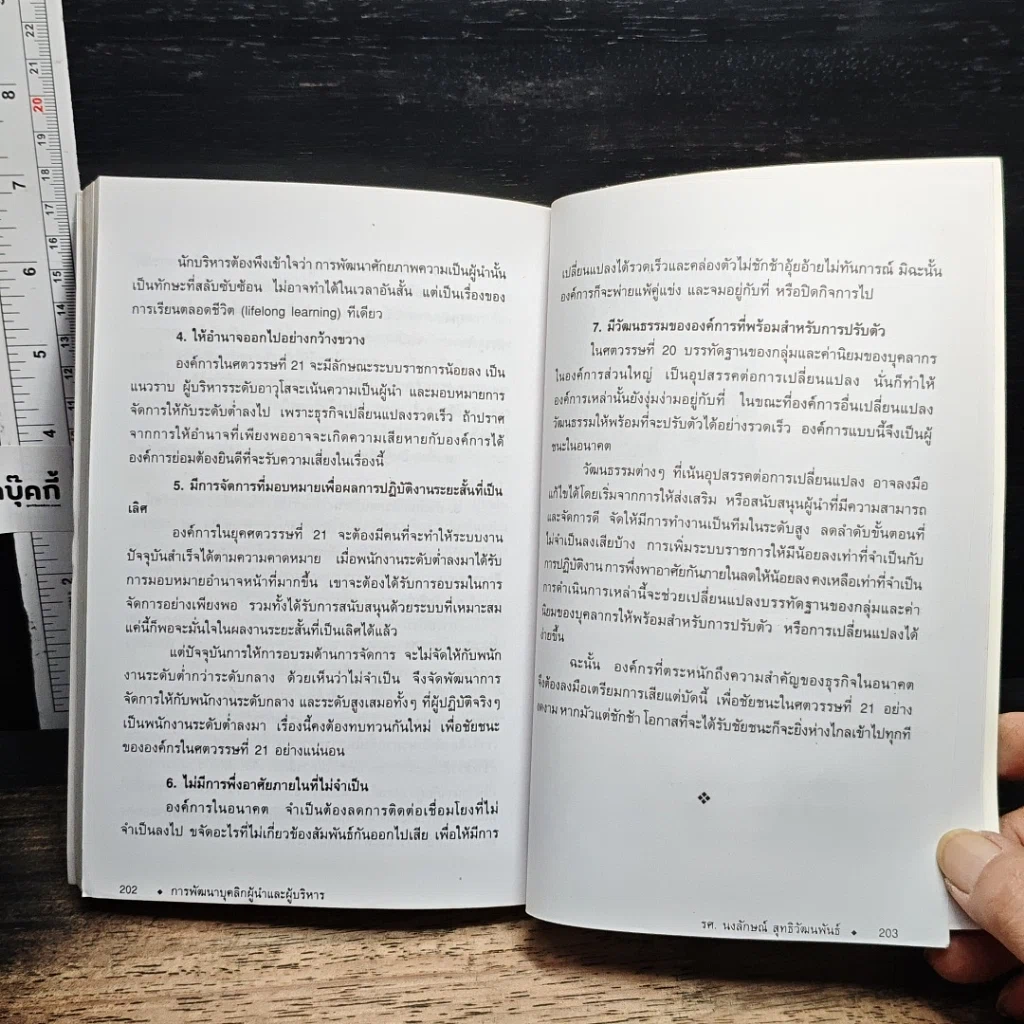 นักบริหารต้องพึงเข้าใจว่า การพัฒนาศักยภาพความเป็นผู้นำนั้น
เป็นทักษะที่สลับซับซ้อน ไม่อาจทำได้ในเวลาอันสั้น แต่เป็นเรื่องของ
การเรียนตลอดชีวิต (lifelong learning) ทีเดียว
4. ให้อำนาจออกไปอย่างกว้างขวาง
องค์การในศตวรรษที่ 21 จะมีลักษณะระบบราชการน้อยลง เป็น
แนวราบ ผู้บริหารระดับอาวุโสจะเน้นความเป็นผู้นำ และมอบหมายการ
จัดการให้กับระดับต่ำลงไป เพราะธุรกิจเปลี่ยนแปลงรวดเร็ว ถ้าปราศ
จากการให้อำนาจที่เพียงพออาจจะเกิดความเสียหายกับองค์การได้
องค์การย่อมต้องยินดีที่จะรับความเสี่ยงในเรื่องนี้
5. มีการจัดการที่มอบหมายเพื่อผลการปฏิบัติงานระยะสั้นที่เป็น
เลิศ
องค์การในยุคศตวรรษที่ 21 จะต้องมีคนที่จะทำให้ระบบงาน
ปัจจุบันสำเร็จได้ตามความคาดหมาย เมื่อพนักงานระดับต่ำลงมาได้รับ
การมอบหมายอำนาจหน้าที่มากขึ้น เขาจะต้องได้รับการอบรมในการ
จัดการอย่างเพียงพอ รวมทั้งได้รับการสนับสนุนด้วยระบบที่เหมาะสม
แค่นี้ก็พอจะมั่นใจในผลงานระยะสั้นที่เป็นเลิศได้แล้ว
แต่ปัจจุบันการให้การอบรมด้านการจัดการ จะไม่จัดให้กับพนัก
งานระดับต่ำกว่าระดับกลาง ด้วยเห็นว่าไม่จำเป็น จึงจัดพัฒนาการ
จัดการให้กับพนักงานระดับกลาง และระดับสูงเสมอทั้งๆ ที่ผู้ปฏิบัติจริงๆ
เป็นพนักงานระดับต่ำลงมา เรื่องนี้คงต้องทบทวนกันใหม่ เพื่อชัยชนะ
ขององค์กรในศตวรรษที่ 21 อย่างแน่นอน
6. ไม่มีการพึ่งอาศัยภายในที่ไม่จำเป็น
องค์การในอนาคต จำเป็นต้องลดการติดต่อเชื่อมโยงที่ไม่
จำเป็นลงไป ขจัดอะไรที่ไม่เกี่ยวข้องสัมพันธ์กันออกไปเสีย เพื่อให้มีการ
202 ◆ การพัฒนาบุคลิกผู้นำและผู้บริหาร
เปลี่ยนแปลงได้รวดเร็วและคล่องตัวไม่ชักช้าอุ้ยอ้ายไม่ทันการณ์ มิฉะนั้น
องค์การก็จะพ่ายแพ้คู่แข่ง และจมอยู่กับที่ หรือปิดกิจการไป
7. มีวัฒนธรรมขององค์การที่พร้อมสำหรับการปรับตัว
ในศตวรรษที่ 20 บรรทัดฐานของกลุ่มและค่านิยมของบุคลากร
ในองค์การส่วนใหญ่ เป็นอุปสรรคต่อการเปลี่ยนแปลง นั่นก็ทำให้
องค์การเหล่านั้นยังงุ่มง่ามอยู่กับที่ ในขณะที่องค์การอื่นเปลี่ยนแปลง
วัฒนธรรมให้พร้อมที่จะปรับตัวได้อย่างรวดเร็ว องค์การแบบนี้จึงเป็นผู้
ชนะในอนาคต
วัฒนธรรมต่างๆ ที่เน้นอุปสรรคต่อการเปลี่ยนแปลง อาจลงมือ
แก้ไขได้โดยเริ่มจากการให้ส่งเสริม หรือสนับสนุนผู้นำที่มีความสามารถ
และจัดการดี จัดให้มีการทำงานเป็นทีมในระดับสูง ลดลำดับขั้นตอนที่
ไม่จำเป็นลงเสียบ้าง การเพิ่มระบบราชการให้มีน้อยลงเท่าที่จำเป็นกับ
การปฏิบัติงาน การพึ่งพาอาศัยกันภายในลดให้น้อยลง คงเหลือเท่าที่จำเป็น
การดำเนินการเหล่านี้จะช่วยเปลี่ยนแปลงบรรทัดฐานของกลุ่มและค่า
นิยมของบุคลากรให้พร้อมสำหรับการปรับตัว หรือการเปลี่ยนแปลงได้
ง่ายขึ้น
ฉะนั้น องค์กรที่ตระหนักถึงความสำคัญของธุรกิจในอนาคต
จึงต้องลงมือเตรียมการเสียแต่บัดนี้ เพื่อชัยชนะในศตวรรษที่ 21 อย่าง
งดงาม หากมัวแต่ชักช้า โอกาสที่จะได้รับชัยชนะก็จะยิ่งห่างไกลเข้าไปทุกที
❖
รศ. นงลักษณ์ สุทธิวัฒนพันธ์ ◆ 203
22
21
20
19
18
17
16
15
14
13
12
11
8
7
6
5
4
2
บุ๊คกี้